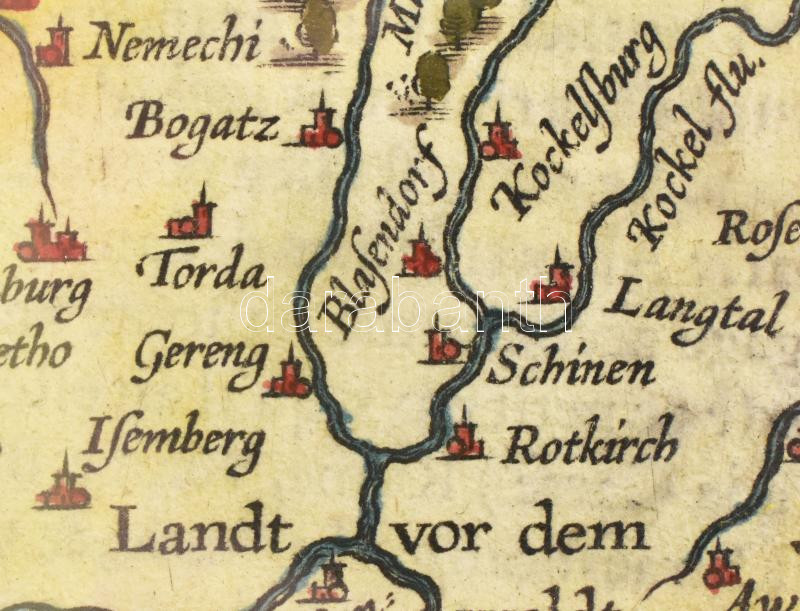 Nemechi
Bogatz
Kockelſburg
Kockel flu.
Blaſendorf
Torda
burg
Langtal
etho
Gereng
Schinen
Iſemberg
Rotkirch
Landt vor dem
darabanth